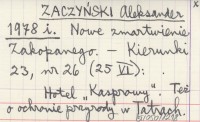 ZACZYŃSKI Aleksander
1978 i. Nowe zmartwienie
Zakopanego. – Kierunki
23, nr 26 (25 VI):
Hotel „Kasprowy". Też
o ochronie przyrody w Tatrach.